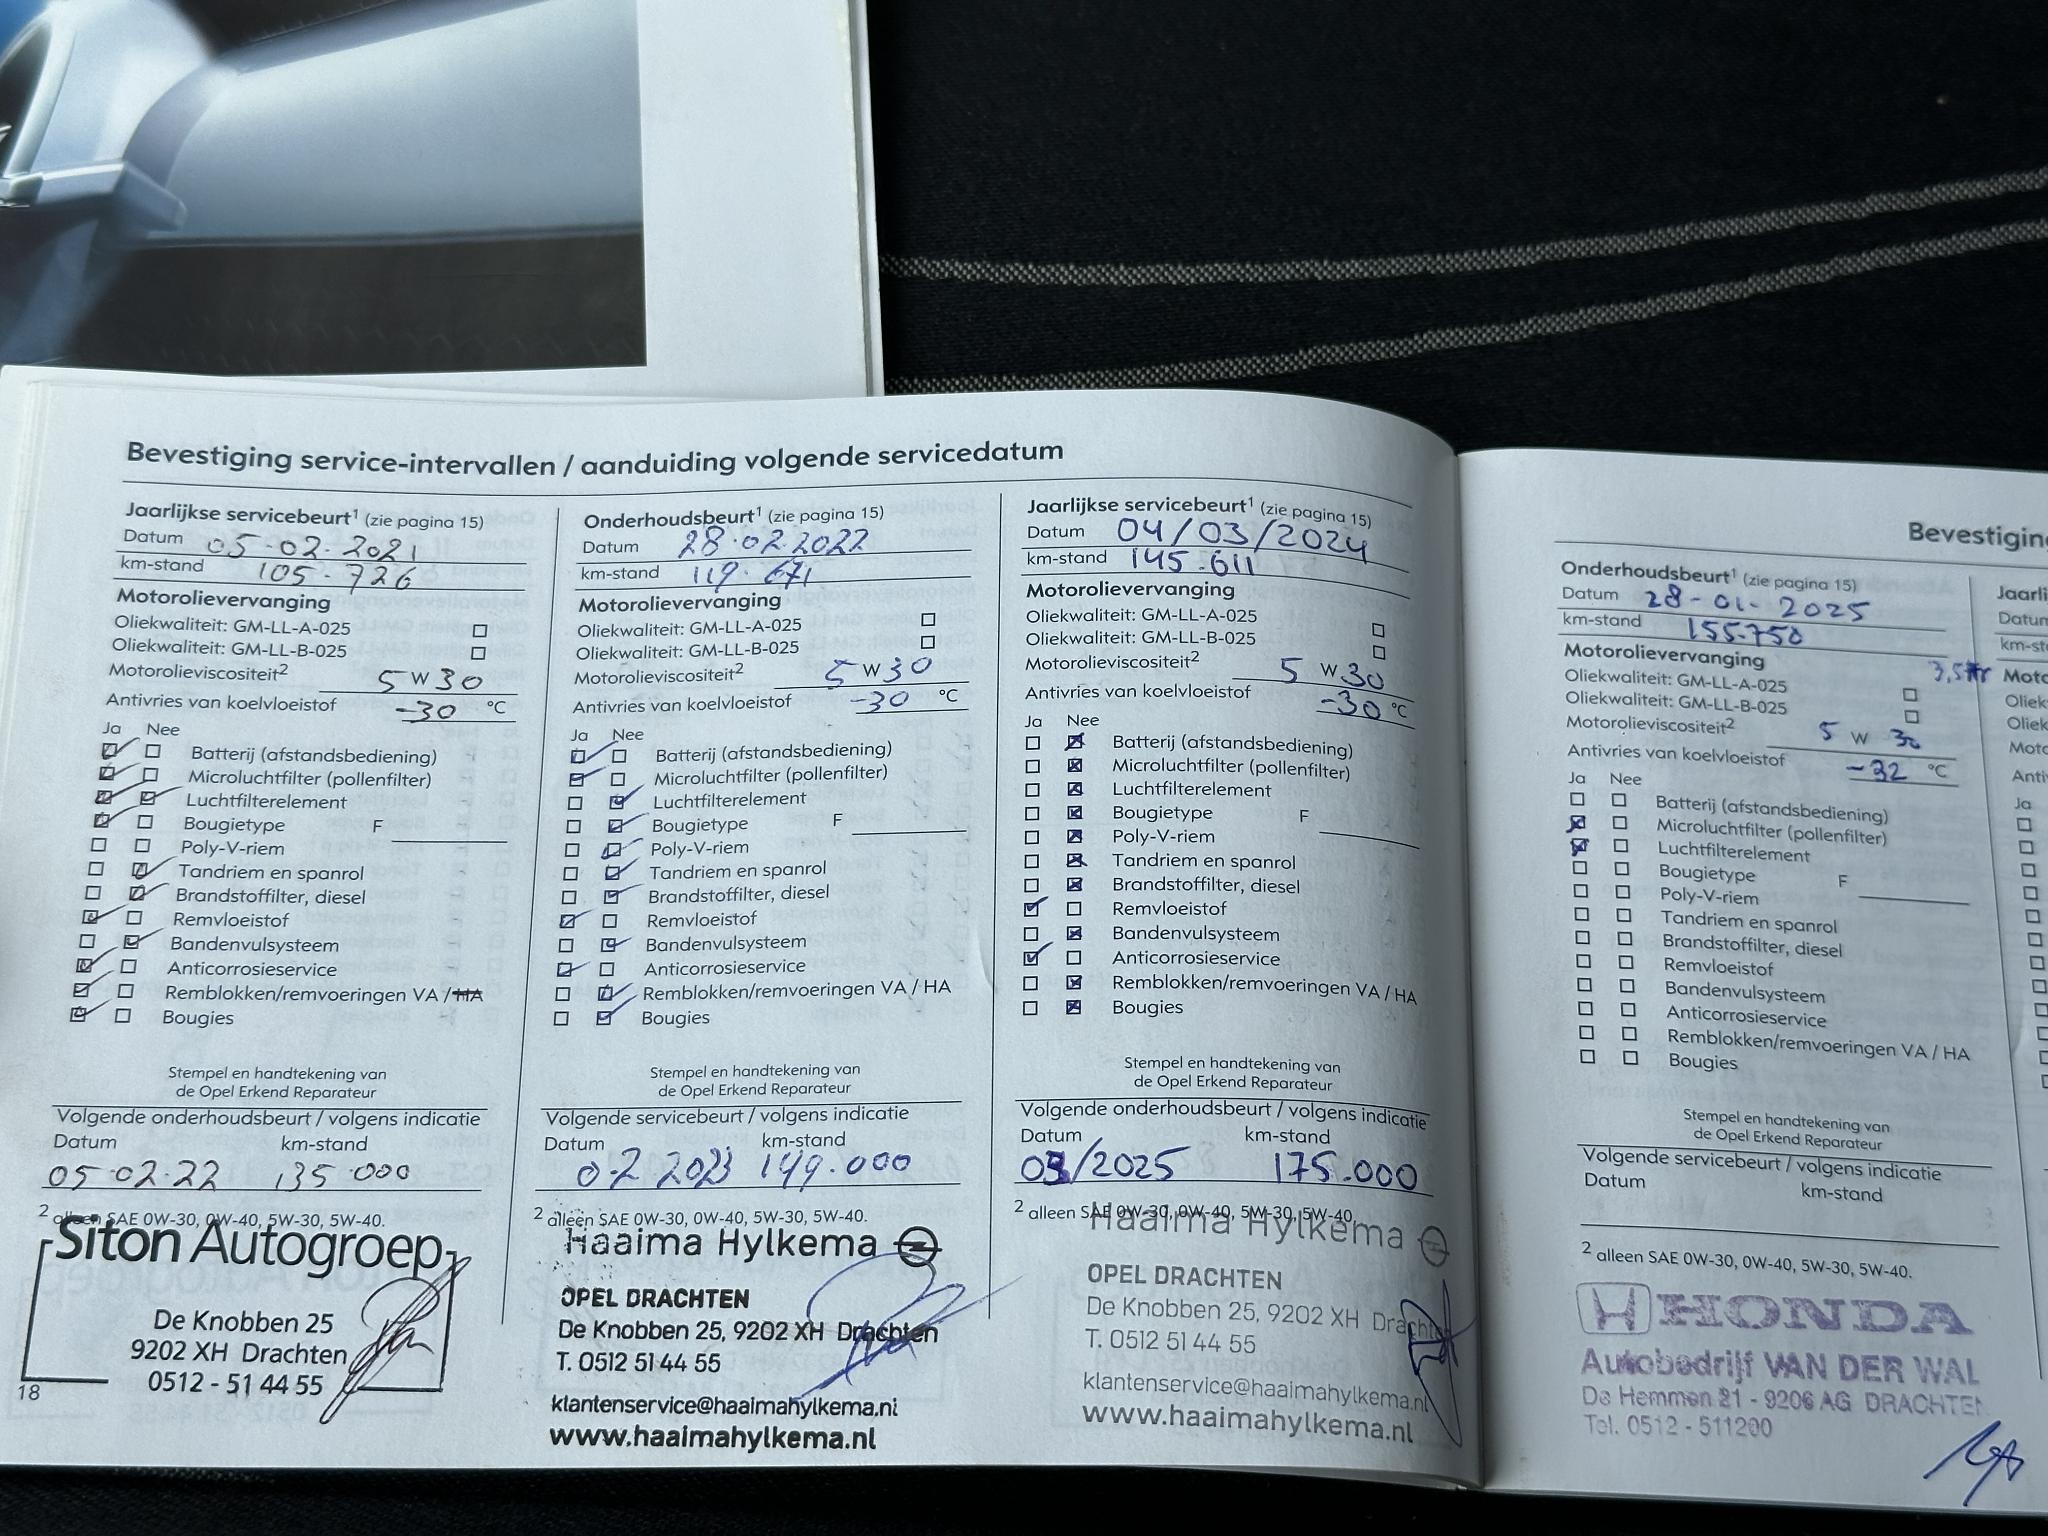 Bevestiging service-intervallen / aanduiding volgende servicedatum
Jaarlijkse servicebeurt¹ (zie pagina 15)
Datum 05-02-2021
km-stand 105-726
Motorolievervanging
Oliekwaliteit: GM-LL-A-025
Oliekwaliteit: GM-LL-B-025
Motorolieviscositeit² 5 W 30
Antivries van koelvloeistof -30 °C
Ja Nee
Batterij (afstandsbediening)
Microluchtfilter (pollenfilter)
Luchtfilterelement
Bougietype F
Poly-V-riem
Tandriem en spanrol
Brandstoffilter, diesel
Remvloeistof
Bandenvulsysteem
Anticorrosieservice
Remblokken/remvoeringen VA / HA
Bougies
Stempel en handtekening van
de Opel Erkend Reparateur
Volgende onderhoudsbeurt / volgens indicatie
Datum km-stand
05-02-22 135.000
² alleen SAE 0W-30, 0W-40, 5W-30, 5W-40.
Siton Autogroep
De Knobben 25
9202 XH Drachten
0512 - 51 44 55
18
Onderhoudsbeurt¹ (zie pagina 15)
Datum 28.02.2022
km-stand 119.671
Motorolievervanging
Oliekwaliteit: GM-LL-A-025
Oliekwaliteit: GM-LL-B-025
Motorolieviscositeit² 5 W 30
Antivries van koelvloeistof -30 °C
Ja Nee
Batterij (afstandsbediening)
Microluchtfilter (pollenfilter)
Luchtfilterelement
Bougietype F
Poly-V-riem
Tandriem en spanrol
Brandstoffilter, diesel
Remvloeistof
Bandenvulsysteem
Anticorrosieservice
Remblokken/remvoeringen VA / HA
Bougies
Stempel en handtekening van
de Opel Erkend Reparateur
Volgende servicebeurt / volgens indicatie
Datum km-stand
02 2023 149.000
² alleen SAE 0W-30, 0W-40, 5W-30, 5W-40.
Haaima Hylkema
OPEL DRACHTEN
De Knobben 25, 9202 XH Drachten
T. 0512 51 44 55
klantenservice@haaimahylkema.nl
www.haaimahylkema.nl
Jaarlijkse servicebeurt¹ (zie pagina 15)
Datum 04/03/2024
km-stand 145.611
Motorolievervanging
Oliekwaliteit: GM-LL-A-025
Oliekwaliteit: GM-LL-B-025
Motorolieviscositeit² 5 W 30
Antivries van koelvloeistof -30 °C
Ja Nee
Batterij (afstandsbediening)
Microluchtfilter (pollenfilter)
Luchtfilterelement
Bougietype F
Poly-V-riem
Tandriem en spanrol
Brandstoffilter, diesel
Remvloeistof
Bandenvulsysteem
Anticorrosieservice
Remblokken/remvoeringen VA / HA
Bougies
Stempel en handtekening van
de Opel Erkend Reparateur
Volgende onderhoudsbeurt / volgens indicatie
Datum km-stand
03/2025 175.000
² alleen SAE 0W-30, 0W-40, 5W-30, 5W-40.
Haaima Hylkema
OPEL DRACHTEN
De Knobben 25, 9202 XH Drachten
T. 0512 51 44 55
klantenservice@haaimahylkema.nl
www.haaimahylkema.nl
Bevestiging
Onderhoudsbeurt¹ (zie pagina 15)
Datum 28-01-2025
km-stand 155.750
Motorolievervanging
Oliekwaliteit: GM-LL-A-025
Oliekwaliteit: GM-LL-B-025
Motorolieviscositeit² 5 W 30
Antivries van koelvloeistof -32 °C
Ja Nee
Batterij (afstandsbediening)
Microluchtfilter (pollenfilter)
Luchtfilterelement
Bougietype F
Poly-V-riem
Tandriem en spanrol
Brandstoffilter, diesel
Remvloeistof
Bandenvulsysteem
Anticorrosieservice
Remblokken/remvoeringen VA / HA
Bougies
Stempel en handtekening van
de Opel Erkend Reparateur
Volgende servicebeurt / volgens indicatie
Datum km-stand
² alleen SAE 0W-30, 0W-40, 5W-30, 5W-40.
HONDA
Autobedrijf VAN DER WAL
De Hemmen 21 - 9206 AG DRACHTEN
Tel. 0512 - 511200
Jaarli
Datum
km-st
Moto
Oliek
Oliek
Moto
Anti
Ja